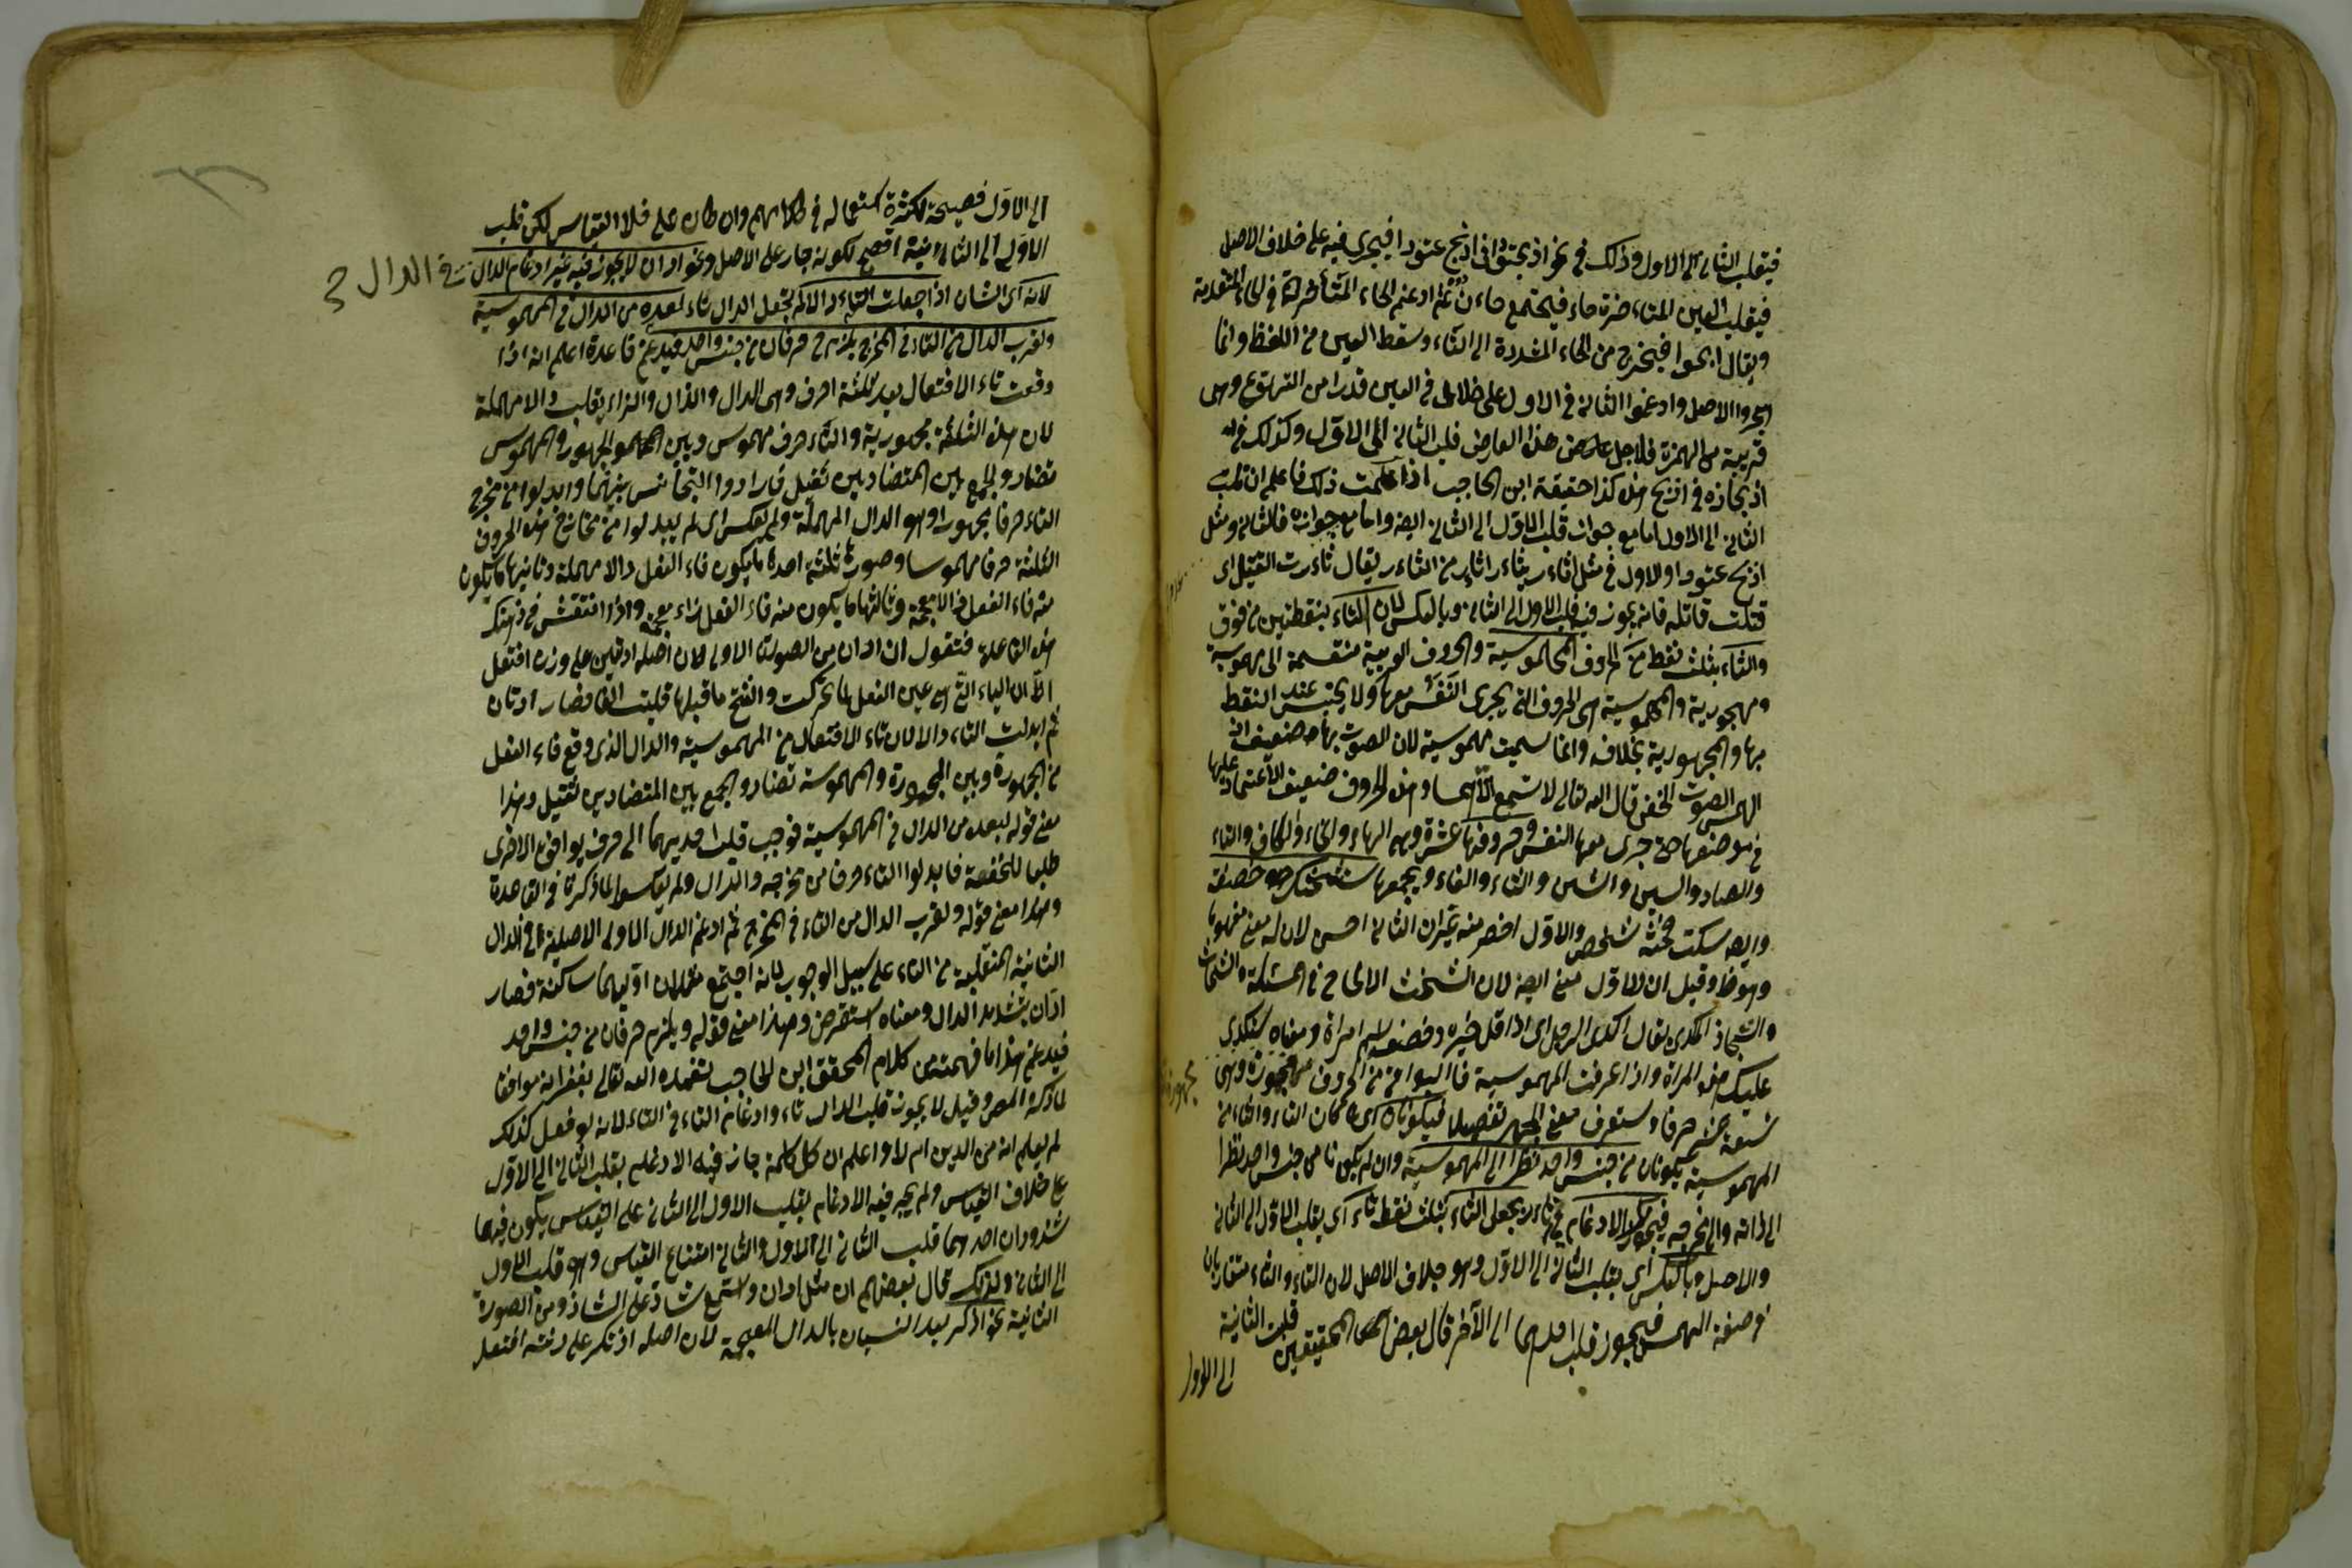 فيقلب الثاني الى الاول وذلك في نحو اذبحتودا في اذبح عتودا فيجرى فيه على خلاف الاصل
فيقلب العين حاء فيجتمع حاءان ثم ادغم الحاء المتأخرة في الحاء المتقدمة
ويقال اذبحتودا فيخرج من الحاء المشددة الى التاء وسقط العين من اللفظ وانما
اجروا الاصل وادغموا الثاني في الاول على خلاف في العين قدرا من التهوع وهى
قريبة من الهمزة فلاجل هذا العارض قلب الثاني الى الاول وكذلك في
اذبحاذه في اذبح هذه كذا حققه ابن الحاجب اذا علمت ذلك فاعلم ان قلب
الثاني الى الاول اما مع جواز قلب الاول الى الثاني ايضا واما مع جوازه فالثاني مثل
اذبح عتودا والاول في مثل اثاءر يثاءر اثاءر من الثاءر يقال ثاءرت القتيل اى
قتلت قاتله فانه يجوز فيه قلب الاول الى الثاني وبالعكس لان التاء بنقطتين من فوق
والثاء بثلث نقط من الحروف المهموسية والحروف العربية منقسمة الى مهموسية
ومجهورية والمهموسية هى الحروف التى يجرى النفس معها ولا يحتبس عند النقط
بها والمجهورية بخلافه وانما سميت مهموسية لان الصوت بها ضعيف اذ
الهمس الصوت الخفى قال الله تعالى لا تسمع الا همسا وهذه الحروف ضعيف الاعتماد عليها
في موضعها حتى جرى معها النفس وحروفها عشرة وهى الهاء والحاء والكاف والتاء
والصاد والسين والشين والثاء والفاء ويجمعها ستشحثك خصفه
وايضا سكت فحثه شخص والاول اخصر منه غير ان الثاني احسن لان له معنى مفهوما
وهو ظ وقيل ان للاول معنى ايضا لان الشحث الالحاح في المسئلة والشحاث
والشحاذ المكدى يقال اكدى الرجل اى اذا قل خيره وخصفه اسم امراة ومعناه ستكدى
عليك هذه المراة واذا عرفت المهموسية فالبواقى من الحروف مجهورة وهى
تسعة عشر حرفا وستعرف معنى الجهر تفصيلا فيكونان اى لما كان التاء والثاء من
المهموسية يكونان من جنس واحد نظرا الى المهموسية وان لم يكونا من جنس واحد نظرا
الى ذاته والى مخرجه فيجوز لك الادغام بجعل التاء بثلث نقط ثاء اى بقلب الاول الى الثاني
والاصل وبالعكس اى بقلب الثاني الى الاول وهو خلاف الاصل لان التاء والثاء متقاربان
في صفة الهمس فيجوز قلب احدهما الى الآخر قال بعض المحققين قلب الثانية
الى الاول
الى الاول فصيحة لكثرة استعماله في كلامهم وان كان على خلاف القياس لكن قلب
الاول الى الثانية افصح لكونه جار على الاصل ونحو ادان لا يجوز فيه غير ادغام الدال
في الدال
لانه اى الشان اذا جعلت التاء دالا لم تجعل الدال تاء لبعده من الدال في المهموسية
ولقرب الدال من التاء في المخرج يلزم حرفان من جنس واحد فيدغم قاعدة اعلم انه اذا
وقعت تاء الافتعال بعد ثلثة احرف وهى الدال والذال والزاء يقلب دالا مهملة
لان هذه الثلثة مجهورية والتاء حرف مهموس وبين المجهور والمهموس
تضاد والجمع بين المتضادين ثقيل فارادوا التجانس بينهما وابدلوا من مخرج
التاء حرفا مجهورا وهو الدال المهملة ولم يعكس اى لم يبدلوا من مخارج هذه الحروف
الثلثة حرفا مهموسا وصورتها ثلثة احدها ما يكون فاء الفعل دالا مهملة وثانيها ما يكون
منه فاء الفعل ذالا معجمة وثالثها ما يكون منه فاء الفعل زاء معجمة واذا انتقش في ذهنك
هذه القاعدة فنقول ان ادان من الصورة الاولى لان اصله ادتين على وزن افتعل
الا ان الياء التى هى عين الفعل لما تحركت وانفتح ما قبلها قلبت الفا فصار ادتان
ثم ابدلت التاء دالا لان تاء الافتعال من المهموسية والدال الذى وقع فاء الفعل
من المجهورة وبين المجهورة والمهموسة تضاد والجمع بين المتضادين ثقيل وهذا
معنى قوله لبعده من الدال في المهموسية فوجب قلب احديهما الى حرف يوافق الاخرى
طلبا للخفة فابدلوا التاء حرفا من مخرجه والدال ولم يعكسوا لما ذكرنا في القاعدة
وهذا معنى قوله ولقرب الدال من التاء في المخرج ثم ادغم الدال الاولى الاصلية في الدال
الثانية المنقلبة من التاء على سبيل الوجوب لانه اجتمع مثلان اوليهما ساكنة فصار
ادّان بتشديد الدال ومعناه استقرض وهذا معنى قوله ويلزم حرفان من جنس واحد
فيدغم هذا ما فهمته من كلام المحقق ابن الحاجب تغمده الله تعالى بغفرانه موافقا
لما ذكره المص وقيل لا يجوز قلب الدال تاء وادغام التاء في التاء لانه لو فعل كذلك
لم يعلم انه من الدين ام لا واعلم ان كل كلمة جاز فيه الادغام بقلب الثاني الى الاول
على خلاف القياس ولم يجز فيه الادغام بقلب الاول الى الثاني على القياس يكون فيها
شذوذان احدهما قلب الثاني الى الاول والثاني امتناع القياس وهو قلب الاول
الى الثاني ولذلك قال بعضهم ان مثل ادان واسمع شاذ على الشاذ ومن الصورة
الثانية نحو اذكر بعد النسيان بالذال المعجمة لان اصله اذتكر على وزن افتعل